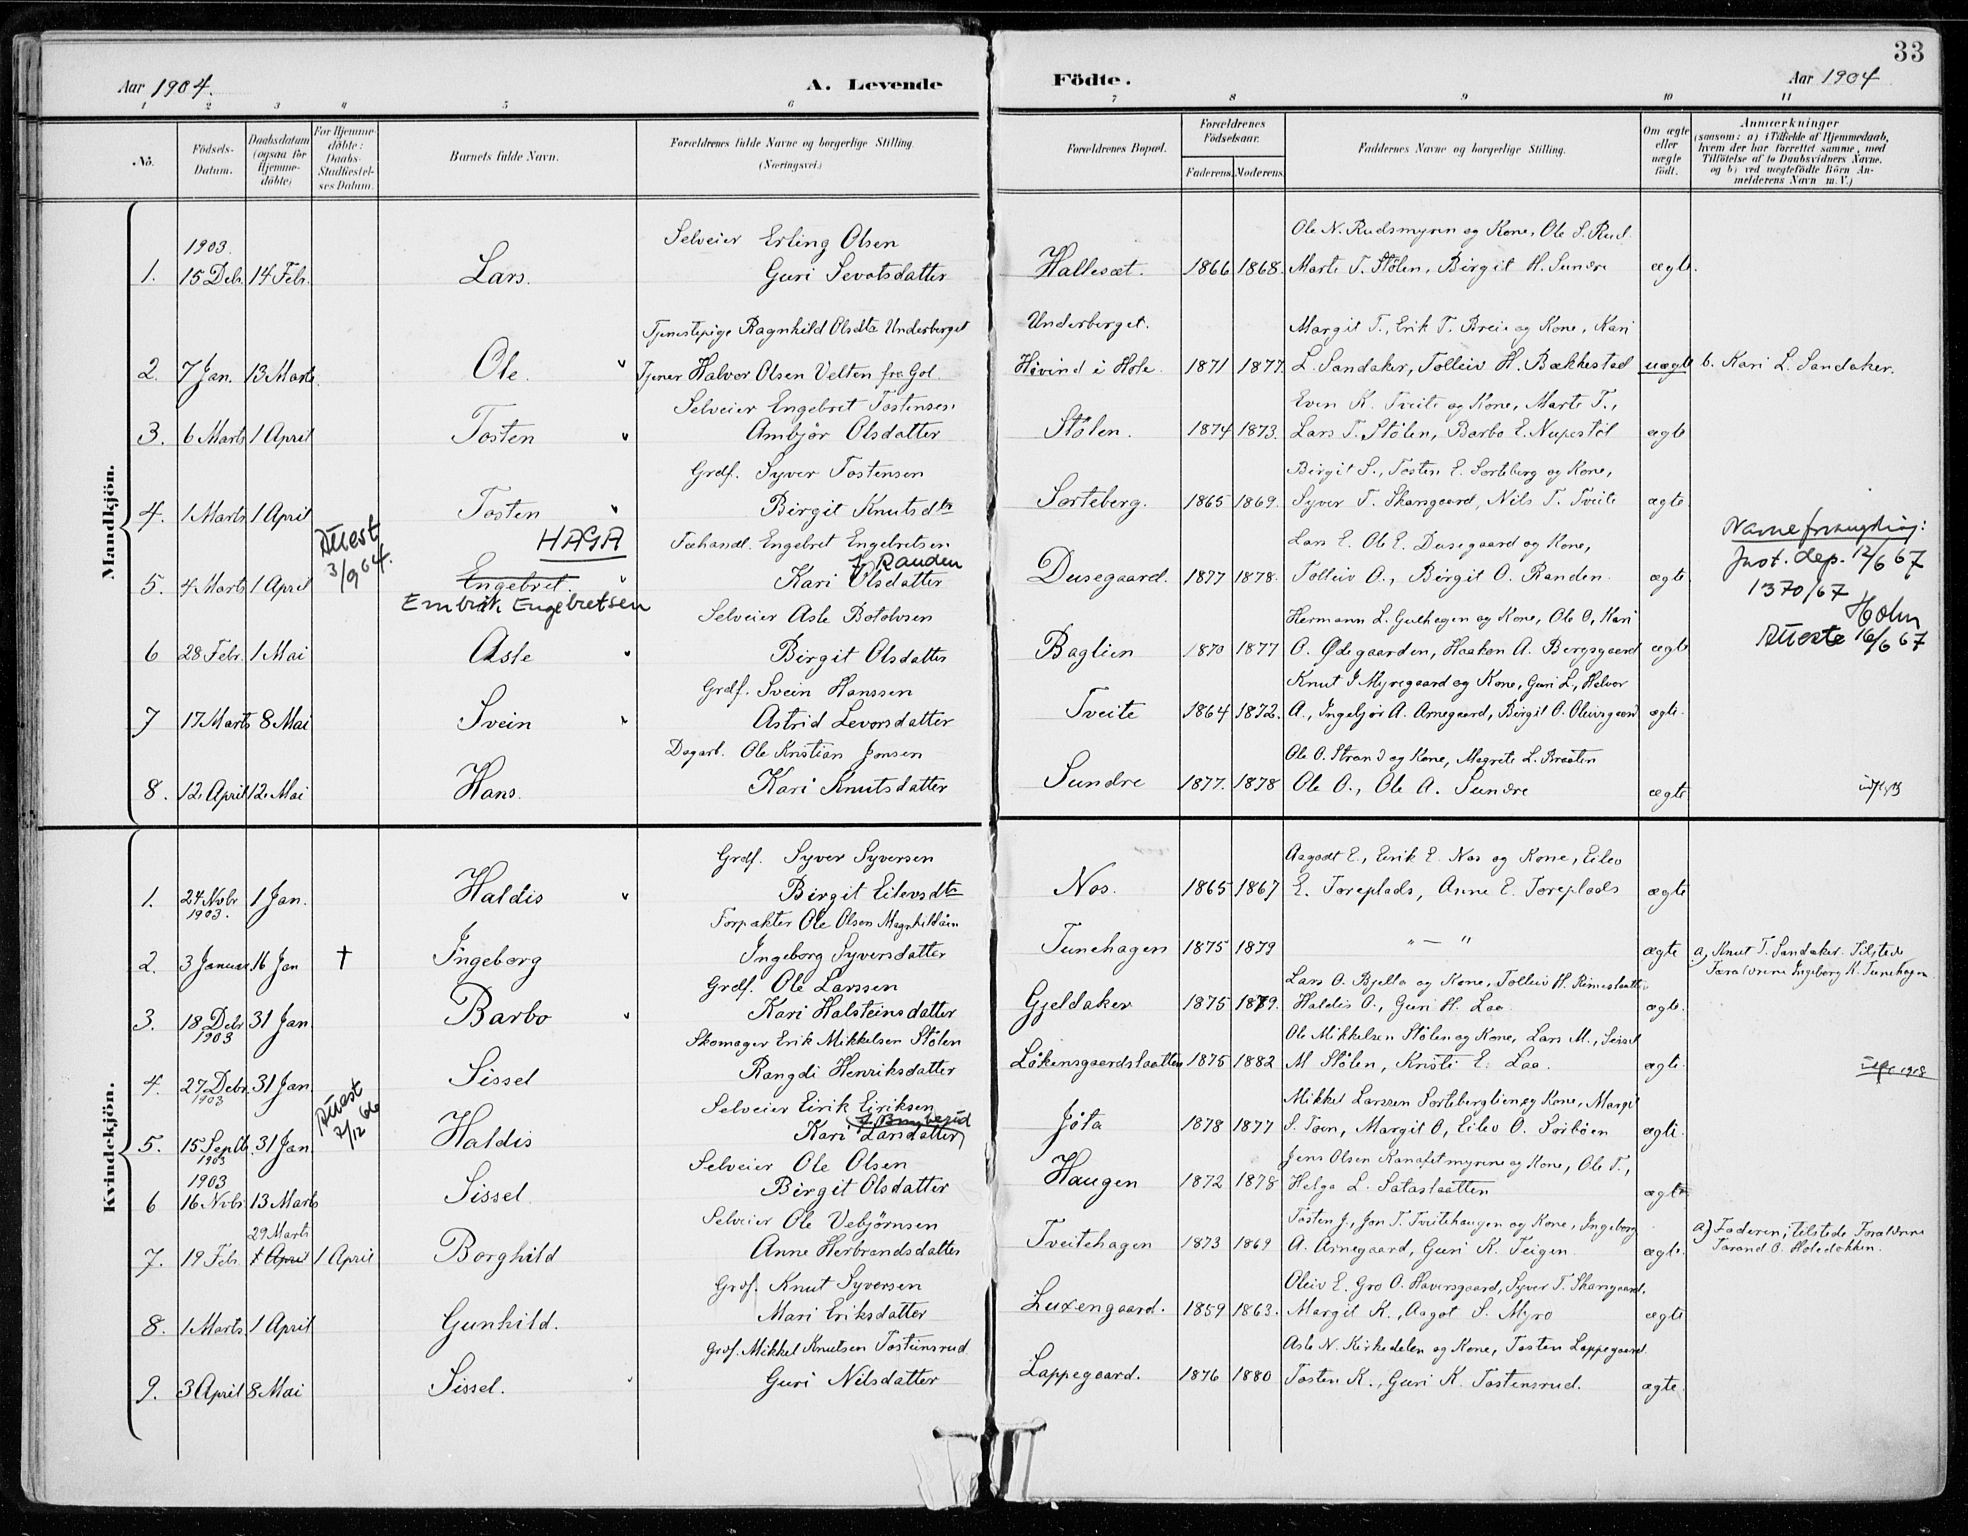 33
Aar 1904.
A. Levende
Födte.
Aar 1904
1 2 3 4 5 6 7 8 9 10 11
No.
Födsels-Datum.
Daabsdatum (ogsaa for Hjemme-döbte)
For Hjemme-döbte: Daabs-Stadfæstel-ses Datum.
Barnets fulde Navn.
Forældrenes fulde Navne og borgerlige Stilling.
(Næringsvei.)
Forældrenes Bopæl.
Forældrenes Födselsaar.
Faderens Moderens
Faddernes Navne og borgerlige Stilling.
Om ægte eller uægte födt.
Anmærkninger
(saasom: a) i Tilfælde af Hjemmedaab,
hvem der har forrettet samme, med
Tilföielse af to Daabsvidners Navne.
og b) ved uægtefödte Börn An-
melderens Navn m. V.)
Mandkjön.
1903.
Selveier Erling Olsen
Ole N. Rudsmyren og Kone, Ole S. Rud.
1. 15 Debr. 14 Febr. Lars. Guri Sevatsdatter Hallesæt. 1866 1868. Marte T. Stølen, Birgit H. Sundre ægte.
Tjenestepige Ragnhild Olsdtr Underberget Underberget. Margit T., Erik T. Breie og Kone, Kari
2. 7 Jan. 13 Marts Ole. Tjener Halvor Olsen Velten fra Gol. Høvind i Hole. 1871 1877. L. Sandaker, Tolleiv H. Bækkestad uægte b. Kari L. Sandaker.
Selveier Engebret Tostensen Even K. Tveite og Kone, Marte T.,
3. 6 Marts 1 April Tosten Ambjør Olsdatter Stølen. 1874 1873. Lars T. Stølen, Barbo E. Nupestøl ægte
Grdf. Syver Tostensen Birgit S., Tosten E. Sorteberg og Kone,
4. 1 Marts 1 April Tosten Birgit Knutsdtr Sorteberg. 1865 1869. Syver T. Skarsgaard, Nils T. Tveite ægte
Attest 3/9 64. HAGA Fæhandl. Engebret Engebretsen Lars E. Ole E. Dusegaard og Kone, Navneforandring:
f. Randen
5. 4 Marts 1 April Engebret. Kari Olsdatter Dusegaard. 1877 1878. Tolleiv O., Birgit O. Randen. ægte Just. dep. 12/6 67
Embrik Engebretsen 1370/67
Selveier Asle Botolvsen Hermann L. Gulhagen og Kone, Ole O, Kari Holm
6 28 Febr. 1 Mai Asle Birgit Olsdatter Baglien 1870 1877 O. Ødegaarden, Haakon A. Bergsgaard ægte Atteste 16/6 67
Grdf. Svein Hanssen Knut J Myregaard og Kone, Guri L., Halvor
7 17 Marts 8 Mai Svein Astrid Levorsdatter Tveite 1864 1872. A., Ingebjør A. Arnegaard, Birgit O. Oleivsgaard ægte.
Dagarb. Ole Kristian Jonsen Ole O. Strand og Kone, Magrete L. Braaten
8. 12 April 12 Mai Hans. Kari Knutsdatter Sundre 1877. 1878 Ole O., Ole A. Sundre ægte
Kvindekjön.
Grdf. Syver Syversen Aagodt E., Eirik E. Nos og Kone, Eilev
1. 24 Novbr 1903. 1 Jan. Haldis Birgit Eilevsdtr Nos. 1865 1867 E. Toreplads, Anne E. Toreplads ægte
Forpakter Ole Olsen Magnhildåin
2. 3 Januar 16 Jan † Ingeborg Ingeborg Syversdatter Tunehagen 1875 1879 " — " ægte a) Knut T. Sandaker. Tilstede
Grdf. Ole Larssen Lars O. Bjella og Kone, Tolleiv H. Rimestaatte Forældrene Ingeborg K. Tunehagen
3. 18 Debr 1903 31 Jan. Barbo Kari Halsteinsdatter Gjeldaker 1875 1879. Haldis O., Guri H. Laa. ægte.
Skomager Erik Mikkelsen Stölen Ole Mikkelsen Stölen og Kone, Lars M., Sissel
4. 27 Debr. 1903 31 Jan. Sissel Rangdi Henriksdatter Løkensgaardstaatten 1875 1882 M Stölen, Kristi E. Laa. ægte
Attest 2/12 66 Selveier Eirik Eiriksen Mikkel Larssen Sorteberglien og Kone, Margit
5. 15 Septb 1903 31 Jan. Haldis Kari Larsdatter Jöta 1878 1877 S. Toen, Margit O, Eilev O. Sorböen ægte.
1903 Selveier Ole Olsen Jens Olsen Kanafetmyrene og Kone, Ole T.,
6 16 Novbr 13 Marts Sissel. Birgit Olsdatter Haugen 1872 1878 Helga L. Satastaatten ægte
29 Marts Selveier Ole Vebjørnsen Tosten J., Jon T. Tveitehaugen og Kone, Ingeborg a) Faderen, tilstede Forældrene
7. 19 Febr. 1 April 1 April Borghild Anne Herbrandsdatter Tveitehagen 1873 1869 A. Arnegaard, Guri K. Teigen. ægte. Tarand O. Holedokken.
Grdf. Knut Syversen Oleiv E. Gro O. Haversgaard, Syver T. Skarsgaard,
8. 1 Marts 1 April Gunhild. Mari Eriksdatter Luxengaard. 1859 1863. Margit K., Aagot S. Myro ægte
Grdf. Mikkel Knutsen Tosteinsrud Asle N. Kirkedelen og Kone, Tosten Lappegaard
9. 3 April 8 Mai Sissel. Guri Nilsdatter Lappegaard. 1876 1880 Tosten K., Guri K. Tostensrud. ægte.